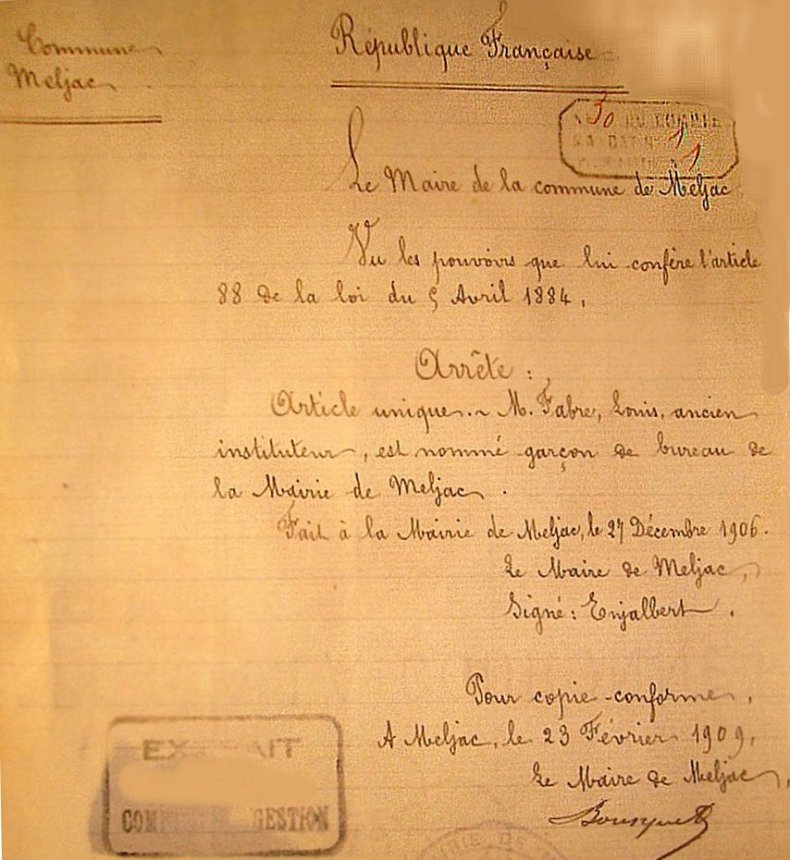 Commune
Meljac
République Française
30
11
1
Le Maire de la commune de Meljac
Vu les pouvoirs que lui confère l'article
88 de la loi du 5 Avril 1884,
Arrête :
Article unique. ~ M. Fabre, Louis, ancien
instituteur, est nommé garçon de bureau de
la Mairie de Meljac.
Fait à la Mairie de Meljac, le 27 Décembre 1906.
Le Maire de Meljac,
Signé : Enjalbert.
Pour copie conforme,
A Meljac, le 23 Février 1909,
Le Maire de Meljac,
Bousquet
EXTRAIT
COMPTE DE GESTION